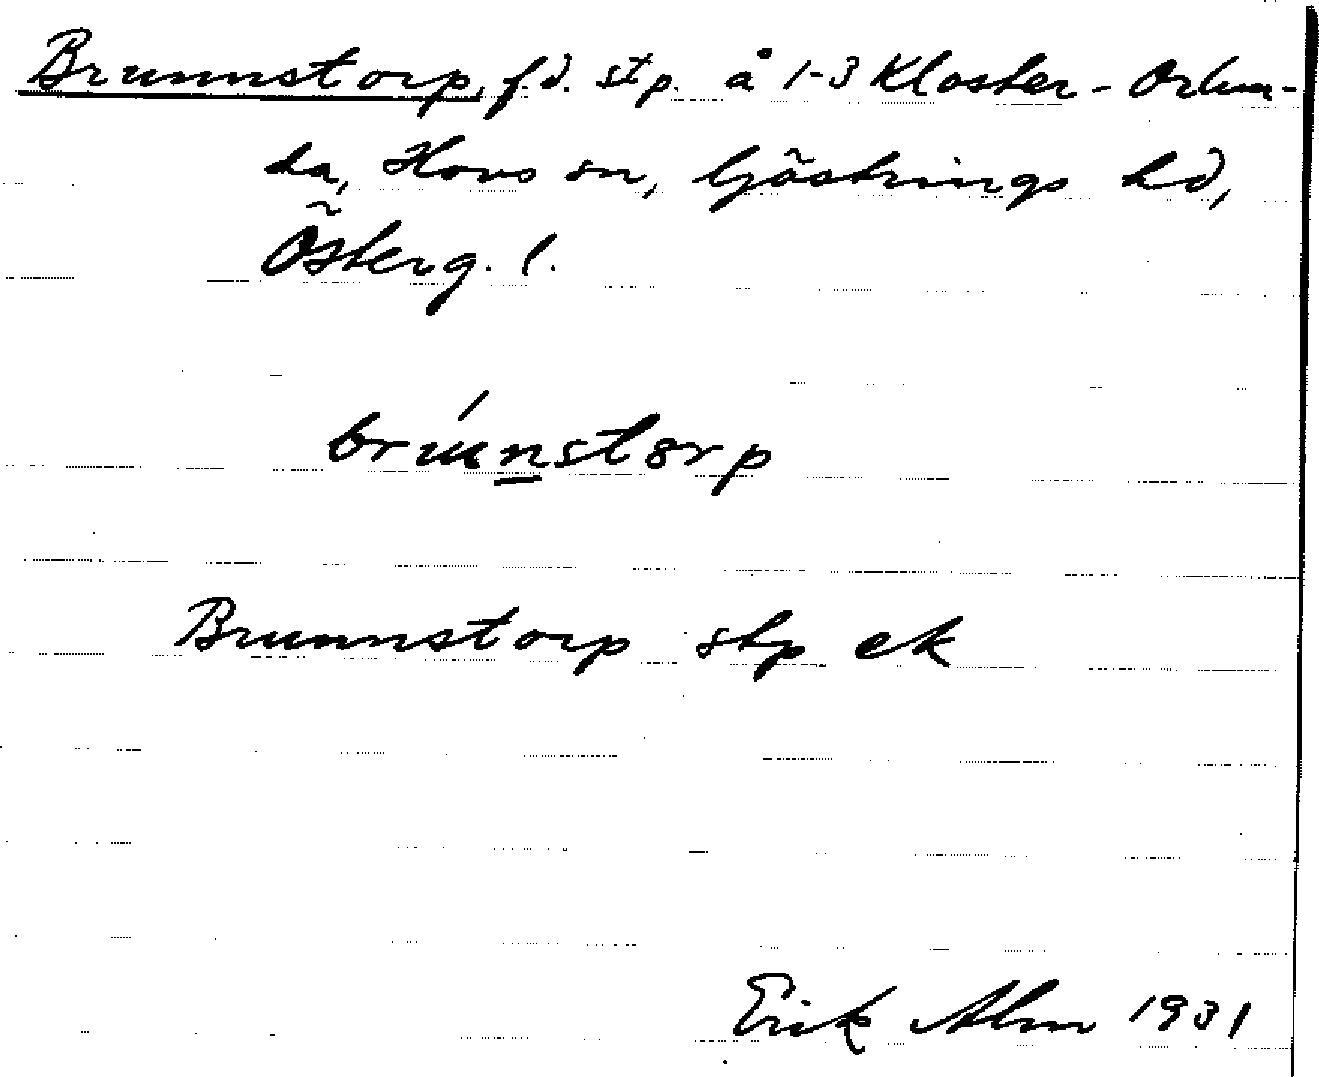 Brunnstorp, f.d. stp. å 1-3 Kloster-Orlun-
da, Hovs sn, Göstrings hd,
Österg. l.
brúnstorp
Brunnstorp stp ek
Erik Alm 1931